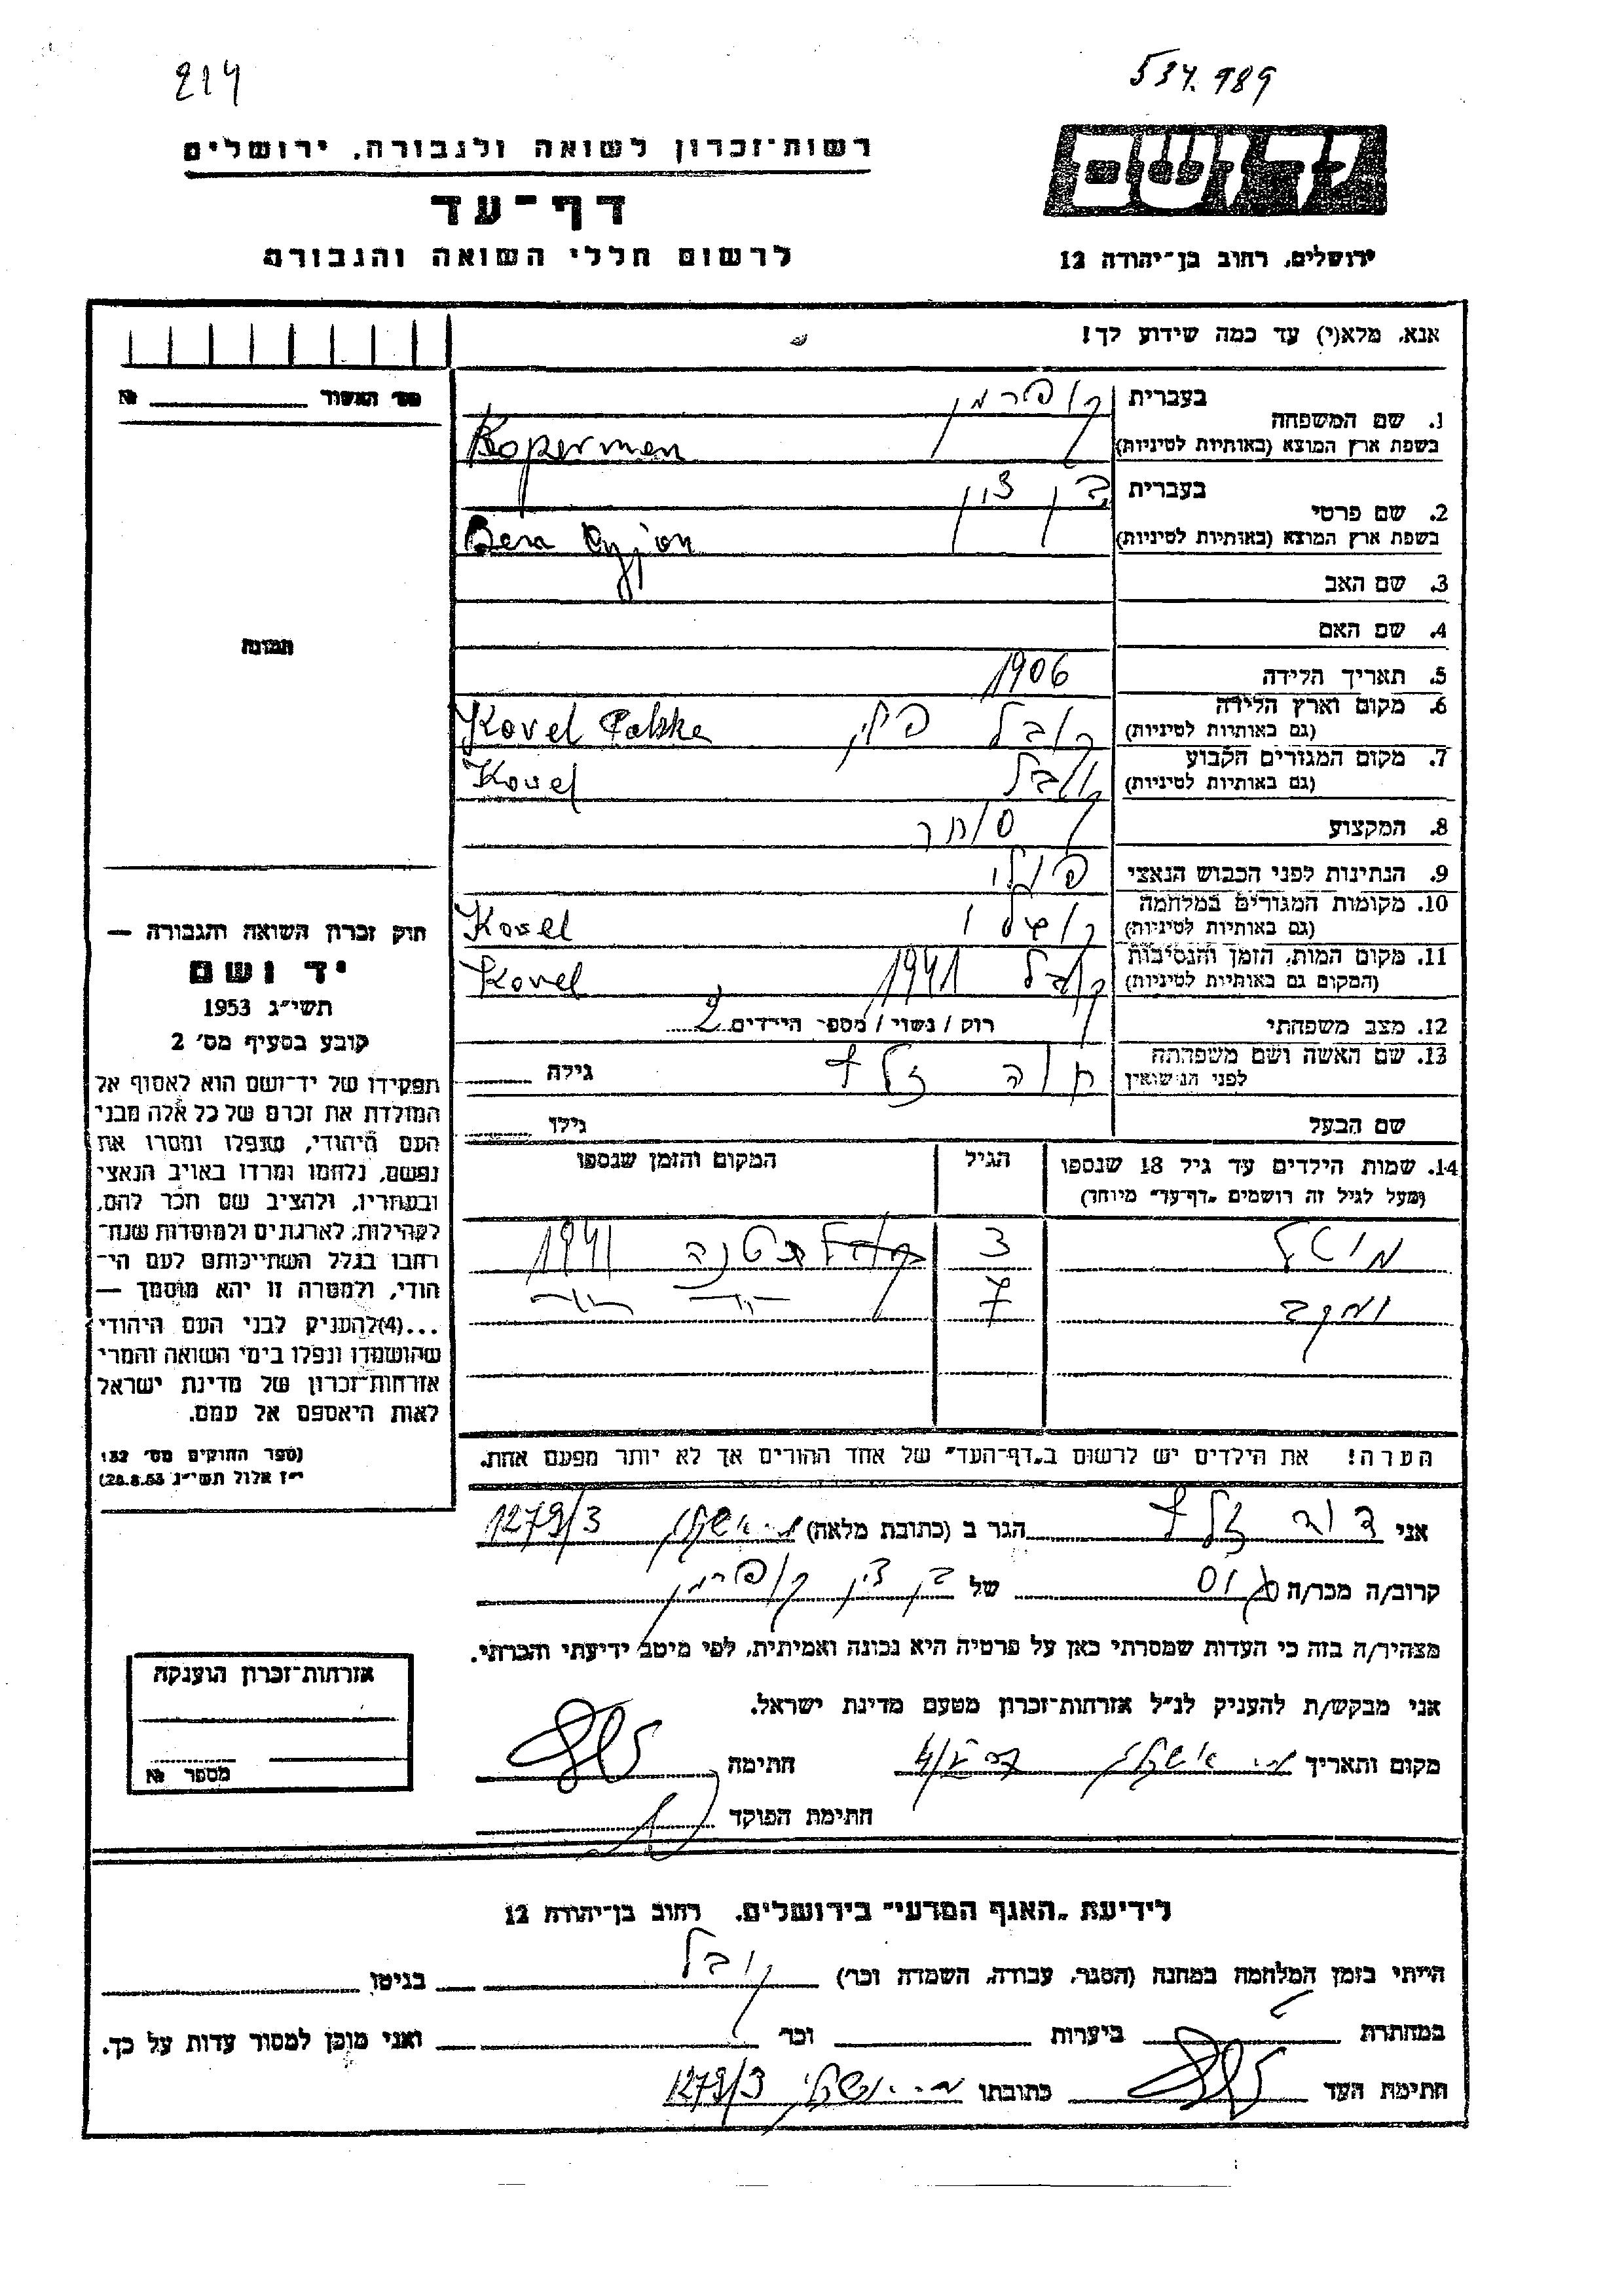 214
534.989
רשות־זכרון לשואה ולגבורה, ירושלים
דף־עד
לרשום חללי השואה והגבורה
יד ושם
ירושלים, רחוב בן־יהודה 12
אנא, מלא(י) עד כמה שידוע לך!
מס' האשור №
תמונה
1. שם המשפחה בעברית קופרמן
בשפת ארץ המוצא (באותיות לטיניות) Kopermen
2. שם פרטי בעברית בן ציון
בשפת ארץ המוצא (באותיות לטיניות)
3. שם האב
4. שם האם
5. תאריך הלידה 1906
6. מקום וארץ הלידה קובל פולין Kovel Polske
(גם באותיות לטיניות)
7. מקום המגורים הקבוע קובל Kovel
(גם באותיות לטיניות)
8. המקצוע סוחר
9. הנתינות לפני הכבוש הנאצי פולני
10. מקומות המגורים במלחמה Kovel
(גם באותיות לטיניות)
11. מקום המות, הזמן והנסיבות קובל 1941 Kovel
(המקום גם באותיות לטיניות)
12. מצב משפחתי רוק / נשוי / מספר הילדים 2
13. שם האשה ושם משפחתה חוה גילה
לפני הנישואין
שם הבעל גילו
14. שמות הילדים עד גיל 18 שנספו הגיל המקום והזמן שנספו
(מעל לגיל זה רושמים "דף־עד" מיוחד)
3 1941
יעקב 7
הערה! את הילדים יש לרשום ב"דף־העד" של אחד ההורים אך לא יותר מפעם אחת.
חוק זכרון השואה והגבורה —
יד ושם
תשי״ג 1953
קובע בסעיף מס' 2
תפקידו של יד־ושם הוא לאסוף אל
המולדת את זכרם של כל אלה מבני
העם היהודי, שנפלו ומסרו את
נפשם, נלחמו ומרדו באויב הנאצי
ובעוזריו, ולהציב שם וזכר להם,
לקהילות, לארגונים ולמוסדות שנח־
רבו בגלל השתייכותם לעם הי־
הודי, ולמטרה זו יהא מוסמך —
...(4)להעניק לבני העם היהודי
שהושמדו ונפלו בימי השואה והמרי
אזרחות־זכרון של מדינת ישראל
לאות היאספם אל עמם.
(ספר החוקים מס' 132,
י״ז אלול תשי״ג 28.8.53)
אני דוד הגר ב (כתובת מלאה) אשקלון 1279/3
קרוב/ה מכר/ה גיס של בן ציון קופרמן
מצהיר/ה בזה כי העדות שמסרתי כאן על פרטיה היא נכונה ואמיתית, לפי מיטב ידיעתי והכרתי.
אני מבקש/ת להעניק לנ״ל אזרחות־זכרון מטעם מדינת ישראל.
מקום ותאריך אשקלון חתימה
חתימת הפוקד
אזרחות־זכרון הוענקה
מספר №
לידיעת "האגף המדעי" בירושלים, רחוב בן־יהודה 12
הייתי בזמן המלחמה במחנה (הסגר, עבודה, השמדה וכו') קובל בגיטו
במחתרת ביערות וכו' ואני מוכן למסור עדות על כך.
חתימת העד כתובתו אשקלון 1279/3